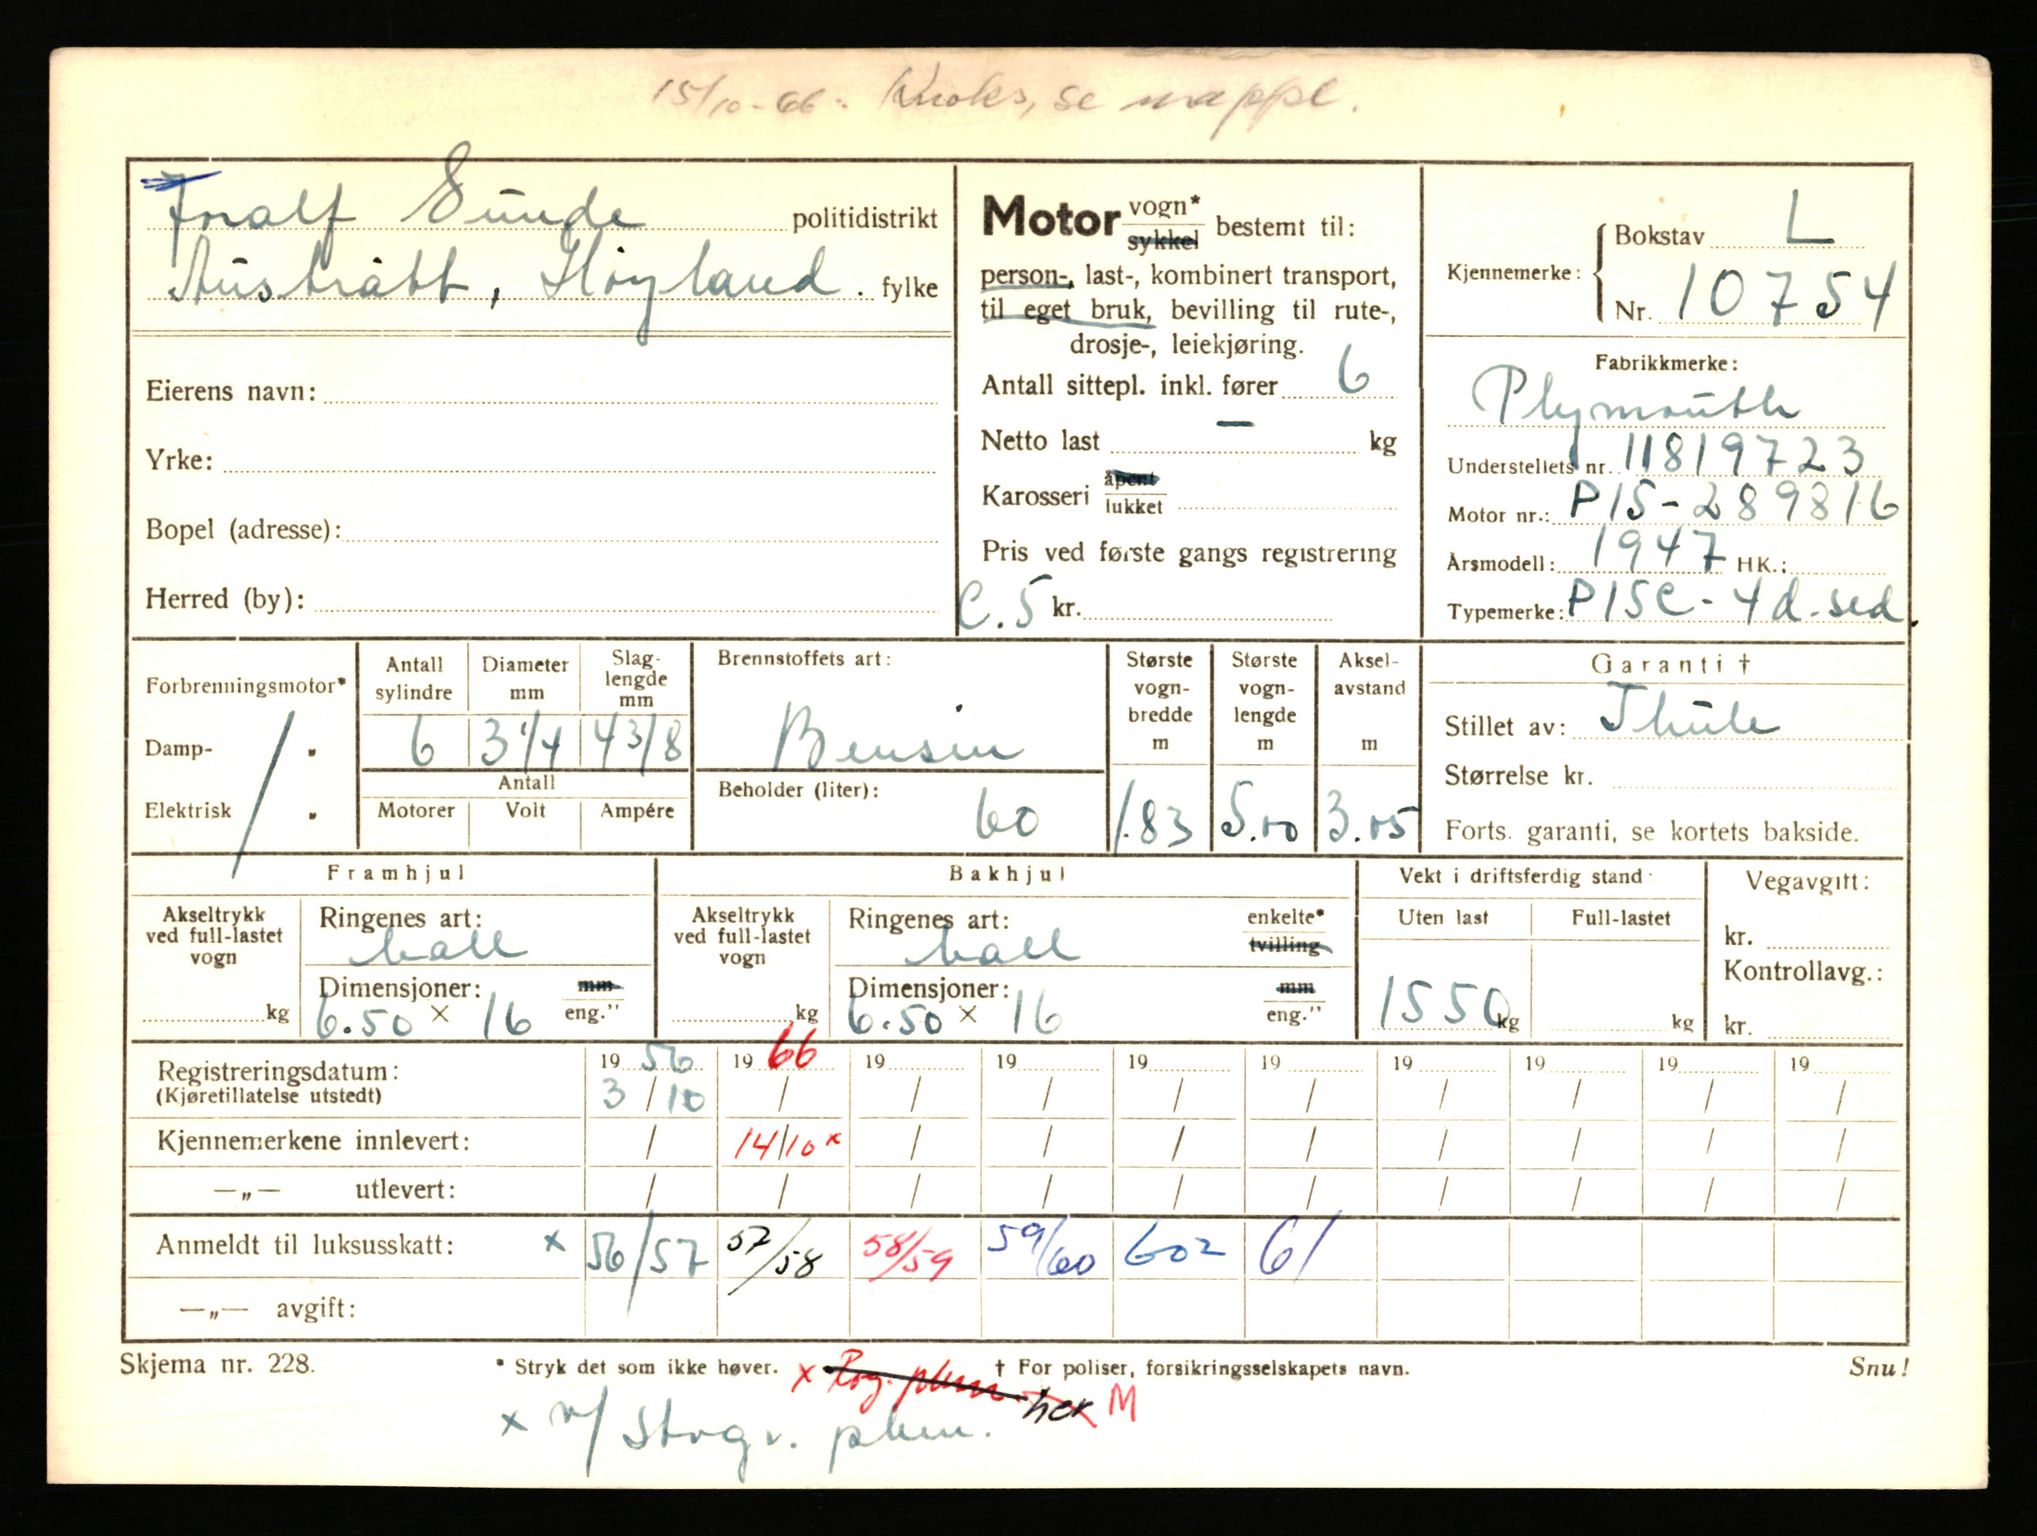 15/10-66. Knoks, se mappe.
Sunde politidistrikt
Austrått, Høyland. fylke
Eierens navn:
Yrke:
Bopel (adresse):
Herred (by):
Motor vogn* sykkel bestemt til:
person-, last-, kombinert transport,
til eget bruk, bevilling til rute-,
drosje-, leiekjøring.
Antall sittepl. inkl. fører 6
Netto last — kg
Karosseri åpent lukket
Pris ved første gangs registrering
C.5 kr.
Kjennemerke: Bokstav L
Nr. 10754
Fabrikkmerke:
Plymouth
Understellets nr. 11819723
Motor nr.: P15-289816
Årsmodell: 1947 HK.:
Typemerke: P15C-4d.sed.
Forbrenningsmotor*
Damp- „
Elektrisk „
Antall sylindre
Diameter mm
Slag-lengde mm
6 3 1/4 4 3/8
Antall
Motorer Volt Ampére
Brennstoffets art:
Bensin
Beholder (liter):
60
Største vogn-bredde m
1.83
Største vogn-lengde m
5.00
Aksel-avstand m
3.05
Garanti †
Stillet av: Thule
Størrelse kr.
Forts. garanti, se kortets bakside.
Framhjul
Akseltrykk ved full-lastet vogn
kg
Ringenes art:
ball
Dimensjoner: mm
6.50 × 16 eng."
Bakhjul
Akseltrykk ved full-lastet vogn
kg
Ringenes art: enkelte*
ball tvilling
Dimensjoner: mm
6.50 × 16 eng."
Vekt i driftsferdig stand
Uten last Full-lastet
1550 kg kg
Vegavgift:
kr.
Kontrollavg.:
kr.
Registreringsdatum: 19 56 19 66 19 19 19 19 19 19 19 19
(Kjøretillatelse utstedt) 3/10 / / / / / / / / /
Kjennemerkene innlevert: / 14/10 x / / / / / / / /
—„— utlevert: / / / / / / / / / /
Anmeldt til luksusskatt: x 56/57 57/58 58/59 59/60 602 61
—„— avgift:
Skjema nr. 228.
* Stryk det som ikke høver.
† For poliser, forsikringsselskapets navn.
Snu!
x
M
x v/ Stvgv. phm.